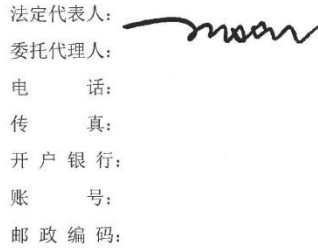 法定代表人：
委托代理人：
电 话：
传 真：
开 户 银 行：
账 号：
邮 政 编 码：